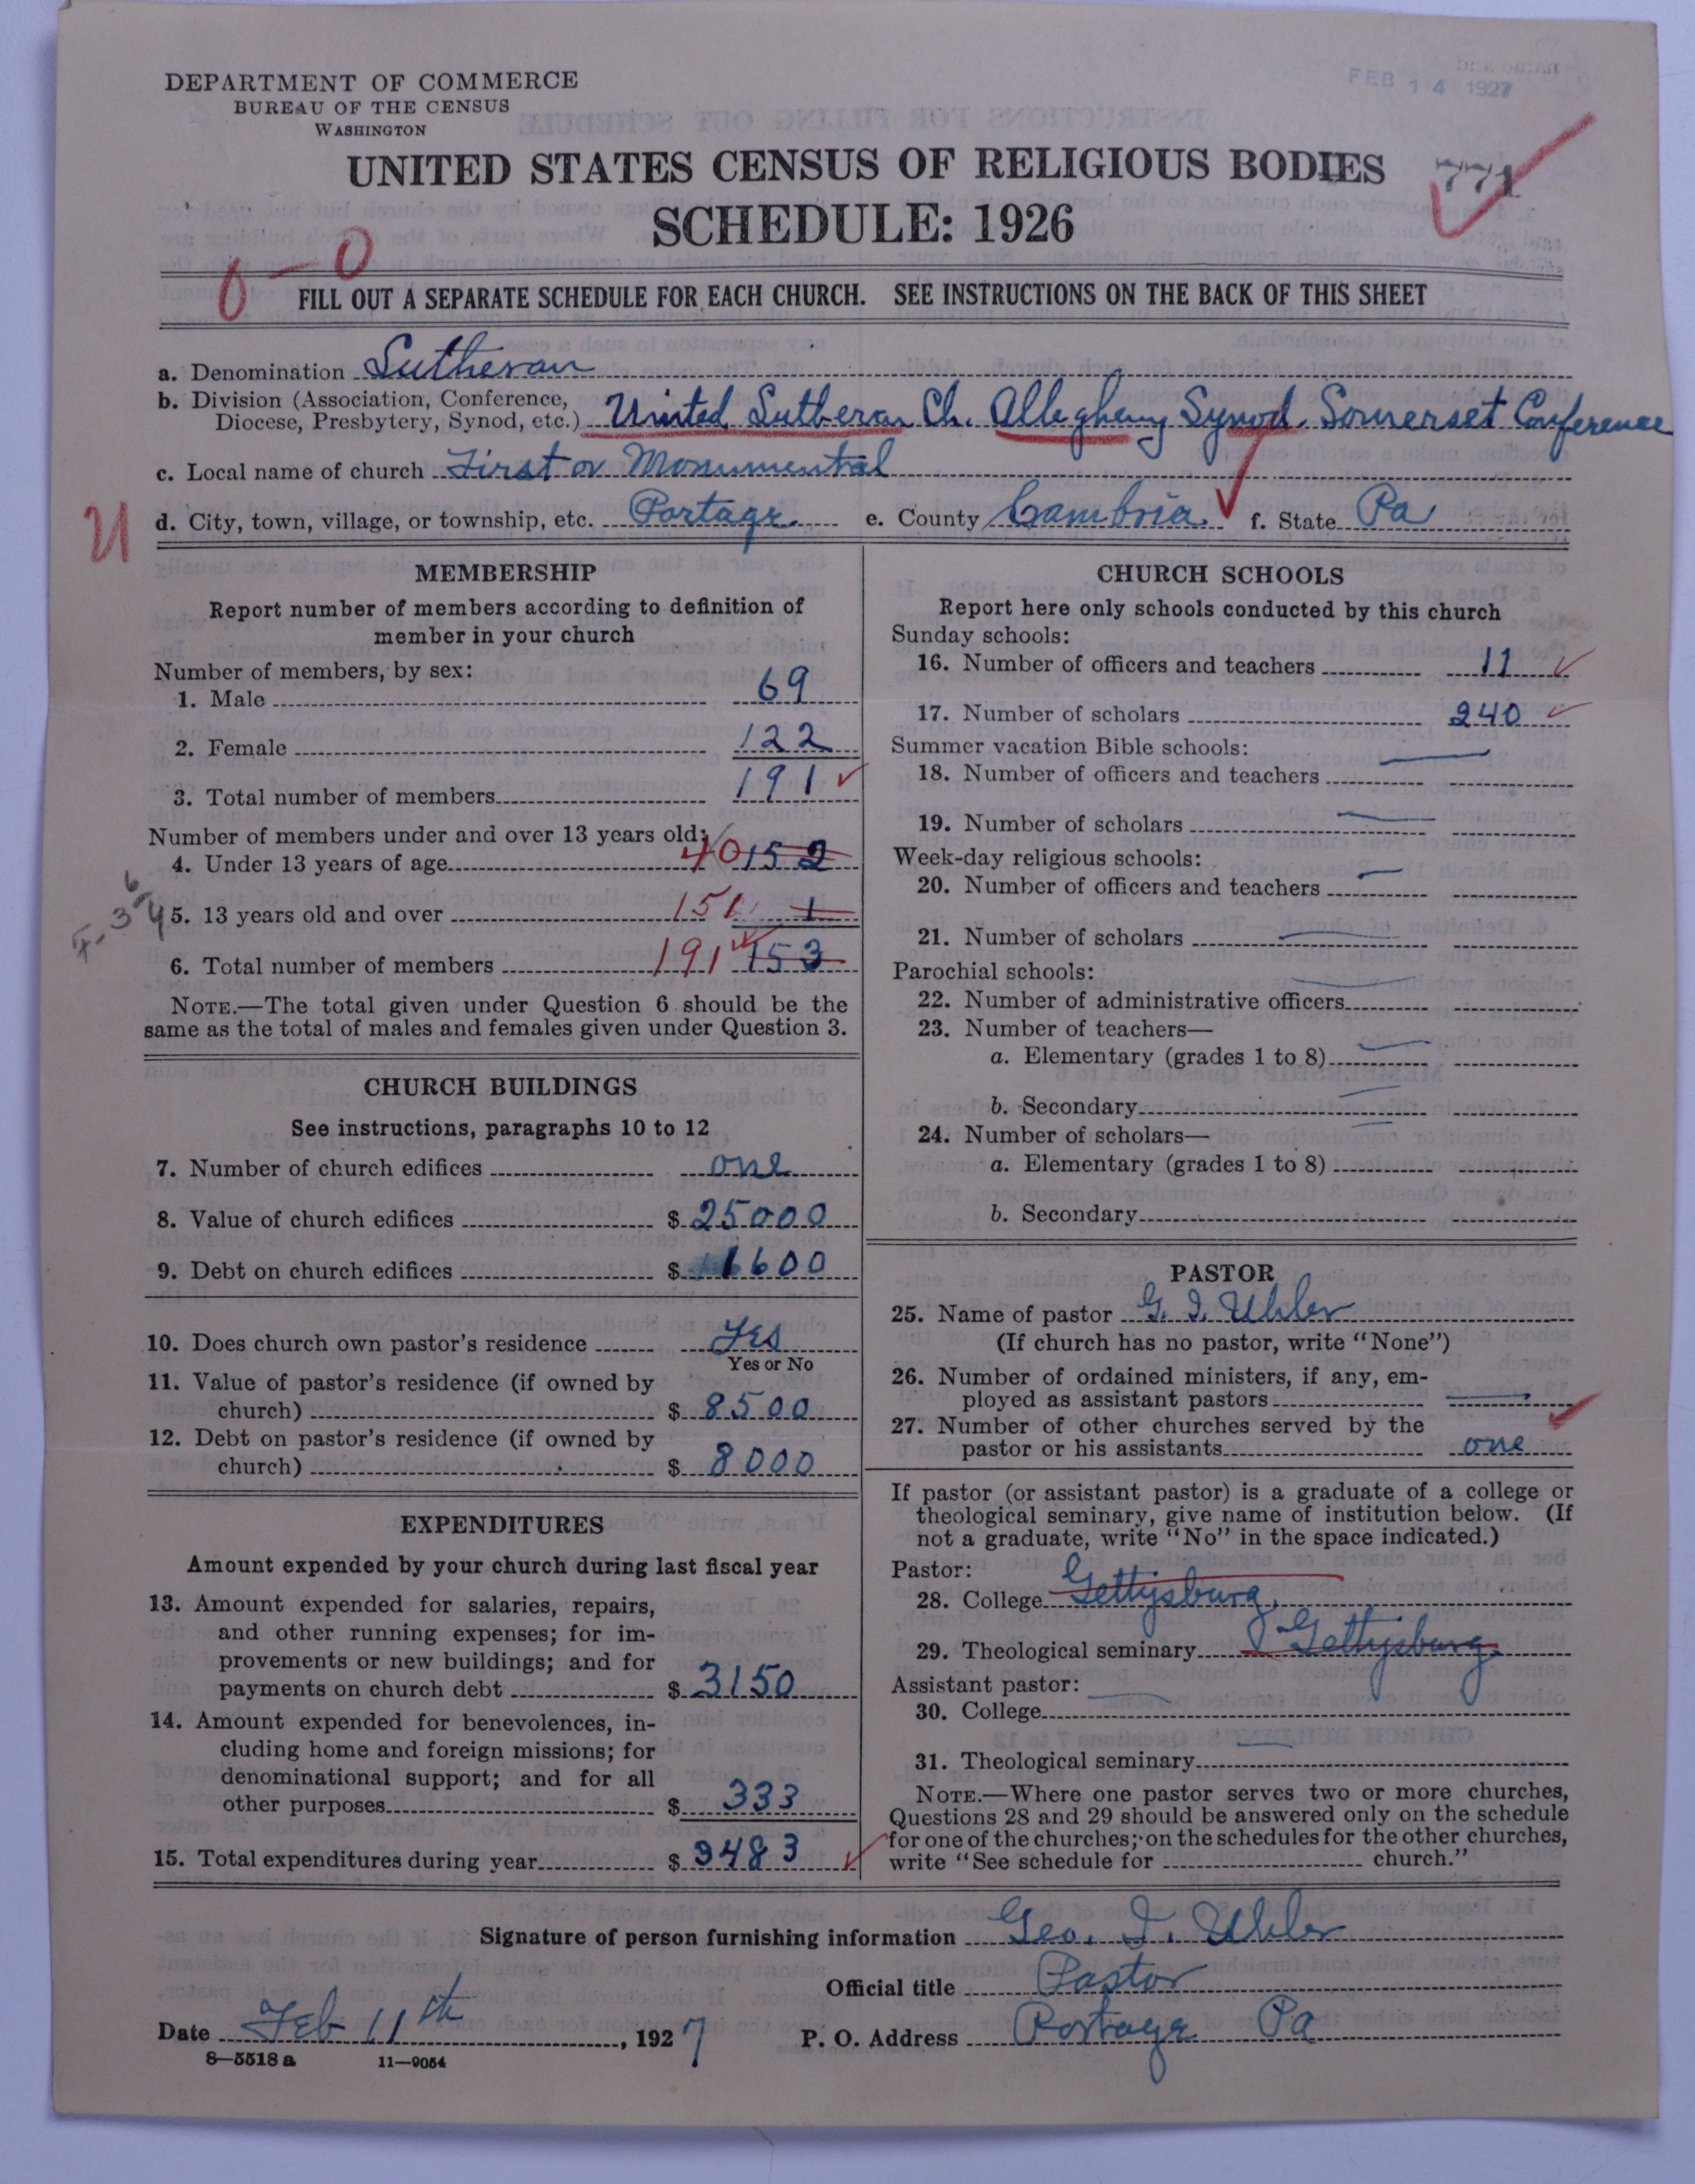 FEB 14 1927
DEPARTMENT OF COMMERCE
BUREAU OF THE CENSUS
WASHINGTON
UNITED STATES CENSUS OF RELIGIOUS BODIES
771
SCHEDULE: 1926
0 – 0
FILL OUT A SEPARATE SCHEDULE FOR EACH CHURCH. SEE INSTRUCTIONS ON THE BACK OF THIS SHEET
a. Denomination Lutheran
b. Division (Association, Conference,
Diocese, Presbytery, Synod, etc.) United Lutheran Ch. Allegheny Synod. Somerset Conference
c. Local name of church First or Monumental
d. City, town, village, or township, etc. Portage. e. County Cambria. f. State Pa
MEMBERSHIP
Report number of members according to definition of
member in your church
Number of members, by sex:
1. Male 69
2. Female 122
3. Total number of members 191
Number of members under and over 13 years old:
4. Under 13 years of age 40 152
5. 13 years old and over 151 1
6. Total number of members 191 153
NOTE.—The total given under Question 6 should be the
same as the total of males and females given under Question 3.
CHURCH BUILDINGS
See instructions, paragraphs 10 to 12
7. Number of church edifices one
8. Value of church edifices $ 25000
9. Debt on church edifices $ 1600
10. Does church own pastor's residence Yes
Yes or No
11. Value of pastor's residence (if owned by
church) $ 8500
12. Debt on pastor's residence (if owned by
church) $ 8000
EXPENDITURES
Amount expended by your church during last fiscal year
13. Amount expended for salaries, repairs,
and other running expenses; for im-
provements or new buildings; and for
payments on church debt $ 3150
14. Amount expended for benevolences, in-
cluding home and foreign missions; for
denominational support; and for all
other purposes $ 333
15. Total expenditures during year $ 3483
CHURCH SCHOOLS
Report here only schools conducted by this church
Sunday schools:
16. Number of officers and teachers 11
17. Number of scholars 240
Summer vacation Bible schools:
18. Number of officers and teachers
19. Number of scholars
Week-day religious schools:
20. Number of officers and teachers
21. Number of scholars
Parochial schools:
22. Number of administrative officers
23. Number of teachers—
a. Elementary (grades 1 to 8)
b. Secondary
24. Number of scholars—
a. Elementary (grades 1 to 8)
b. Secondary
PASTOR
25. Name of pastor G. I. Uhler
(If church has no pastor, write "None")
26. Number of ordained ministers, if any, em-
ployed as assistant pastors
27. Number of other churches served by the
pastor or his assistants one
If pastor (or assistant pastor) is a graduate of a college or
theological seminary, give name of institution below. (If
not a graduate, write "No" in the space indicated.)
Pastor:
28. College Gettysburg
29. Theological seminary Gettysburg
Assistant pastor:
30. College
31. Theological seminary
NOTE.—Where one pastor serves two or more churches,
Questions 28 and 29 should be answered only on the schedule
for one of the churches; on the schedules for the other churches,
write "See schedule for church."
Signature of person furnishing information Geo. I. Uhler
Official title Pastor
Date Feb 11th, 1927 P. O. Address Portage Pa
8—5518 a 11—9054